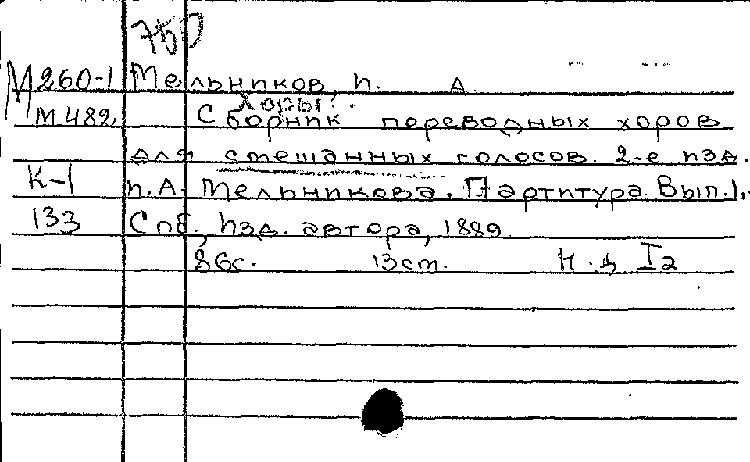 750
М260-1 Мельников, П. А
Хоры.
М 482. Сборник переводных хоров
для смешанных голосов. 2-е изд.
К-1 П.А. Мельникова. Партитура. Вып.1.
133 Спб., Изд. автора, 1889.
86с. 13см.